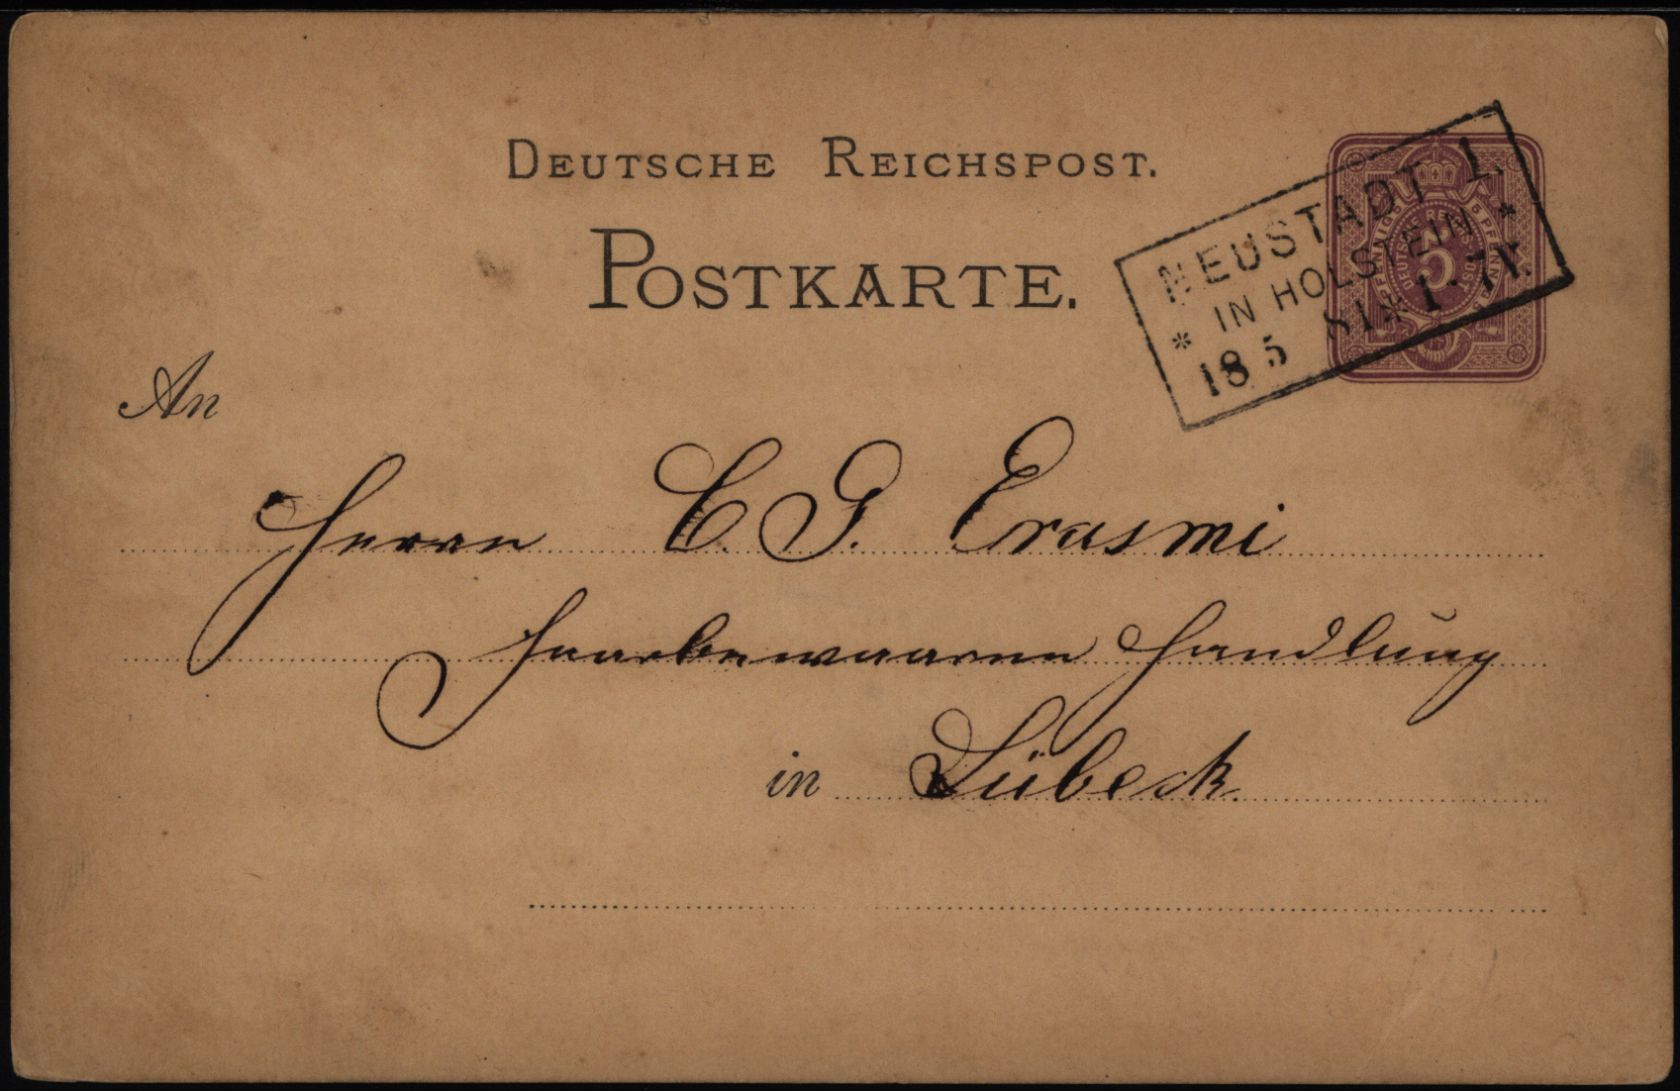 DEUTSCHE REICHSPOST.
POSTKARTE.
NEUSTADT 1.
* IN HOLSTEIN *
18 5 81 * 1-7V.
DEUTSCHE REICHSPOST
5
An
Herrn C. G. Erasmi
Farbenwaaren Handlung
in Lübeck.